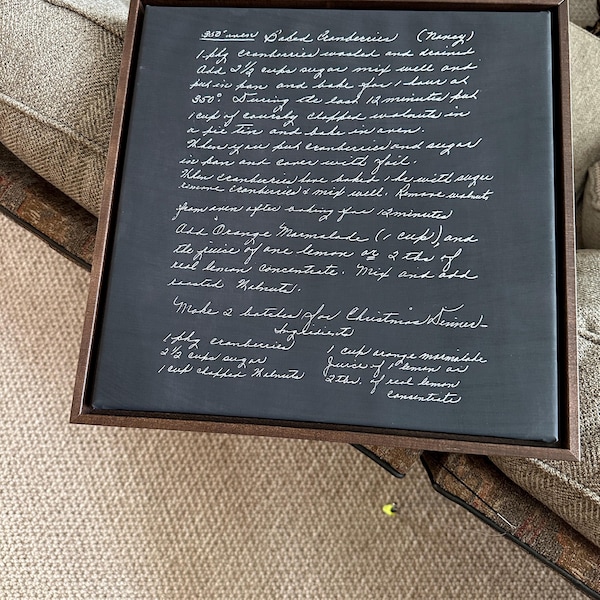 350° oven Baked Cranberries (Nancy)
1 pkg cranberries washed and drained
Add 2½ cups sugar mix well and
put in pan and bake for 1 hour at
350°. During the last 12 minutes put
1 cup of coursly chopped walnuts in
a pie tin and bake in oven.
When you put cranberries and sugar
in pan and cover with foil.
When cranberries have baked 1 hr with sugar
remove cranberries & mix well. Remove walnuts
from oven after cooking for 12 minutes
Add Orange Marmalade (1 cup), and
the juice of one lemon or 2 tbs of
real lemon concentrate. Mix and add
roasted Walnuts.
Make 2 batches for Christmas Dinner-
Ingredients
1 pkg cranberries
2½ cups sugar
1 cup chopped Walnuts
1 cup orange marmalade
Juice of 1 lemon or
2 tbs. of real lemon
concentrate